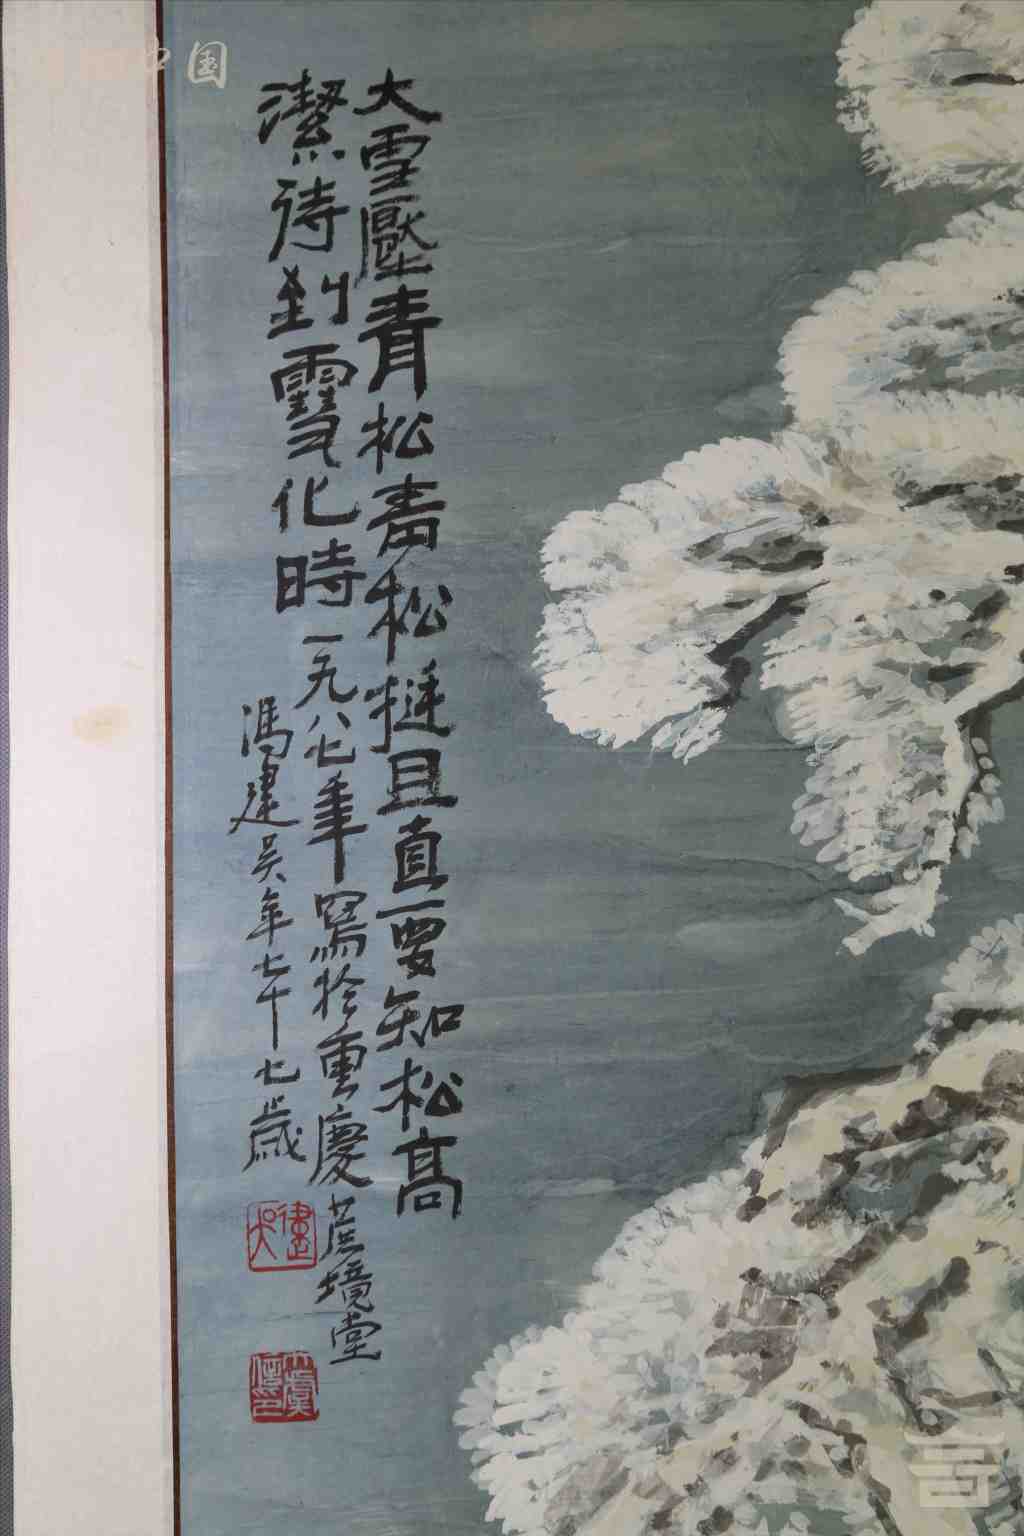 大雪壓青松青松挺且直要知松高
潔待到雪化時一九八七年寫於重慶蔗境堂
馮建吴年七十七歲
建吴
国